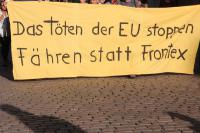 Das Töten der EU stoppen
Fähren statt Frontex